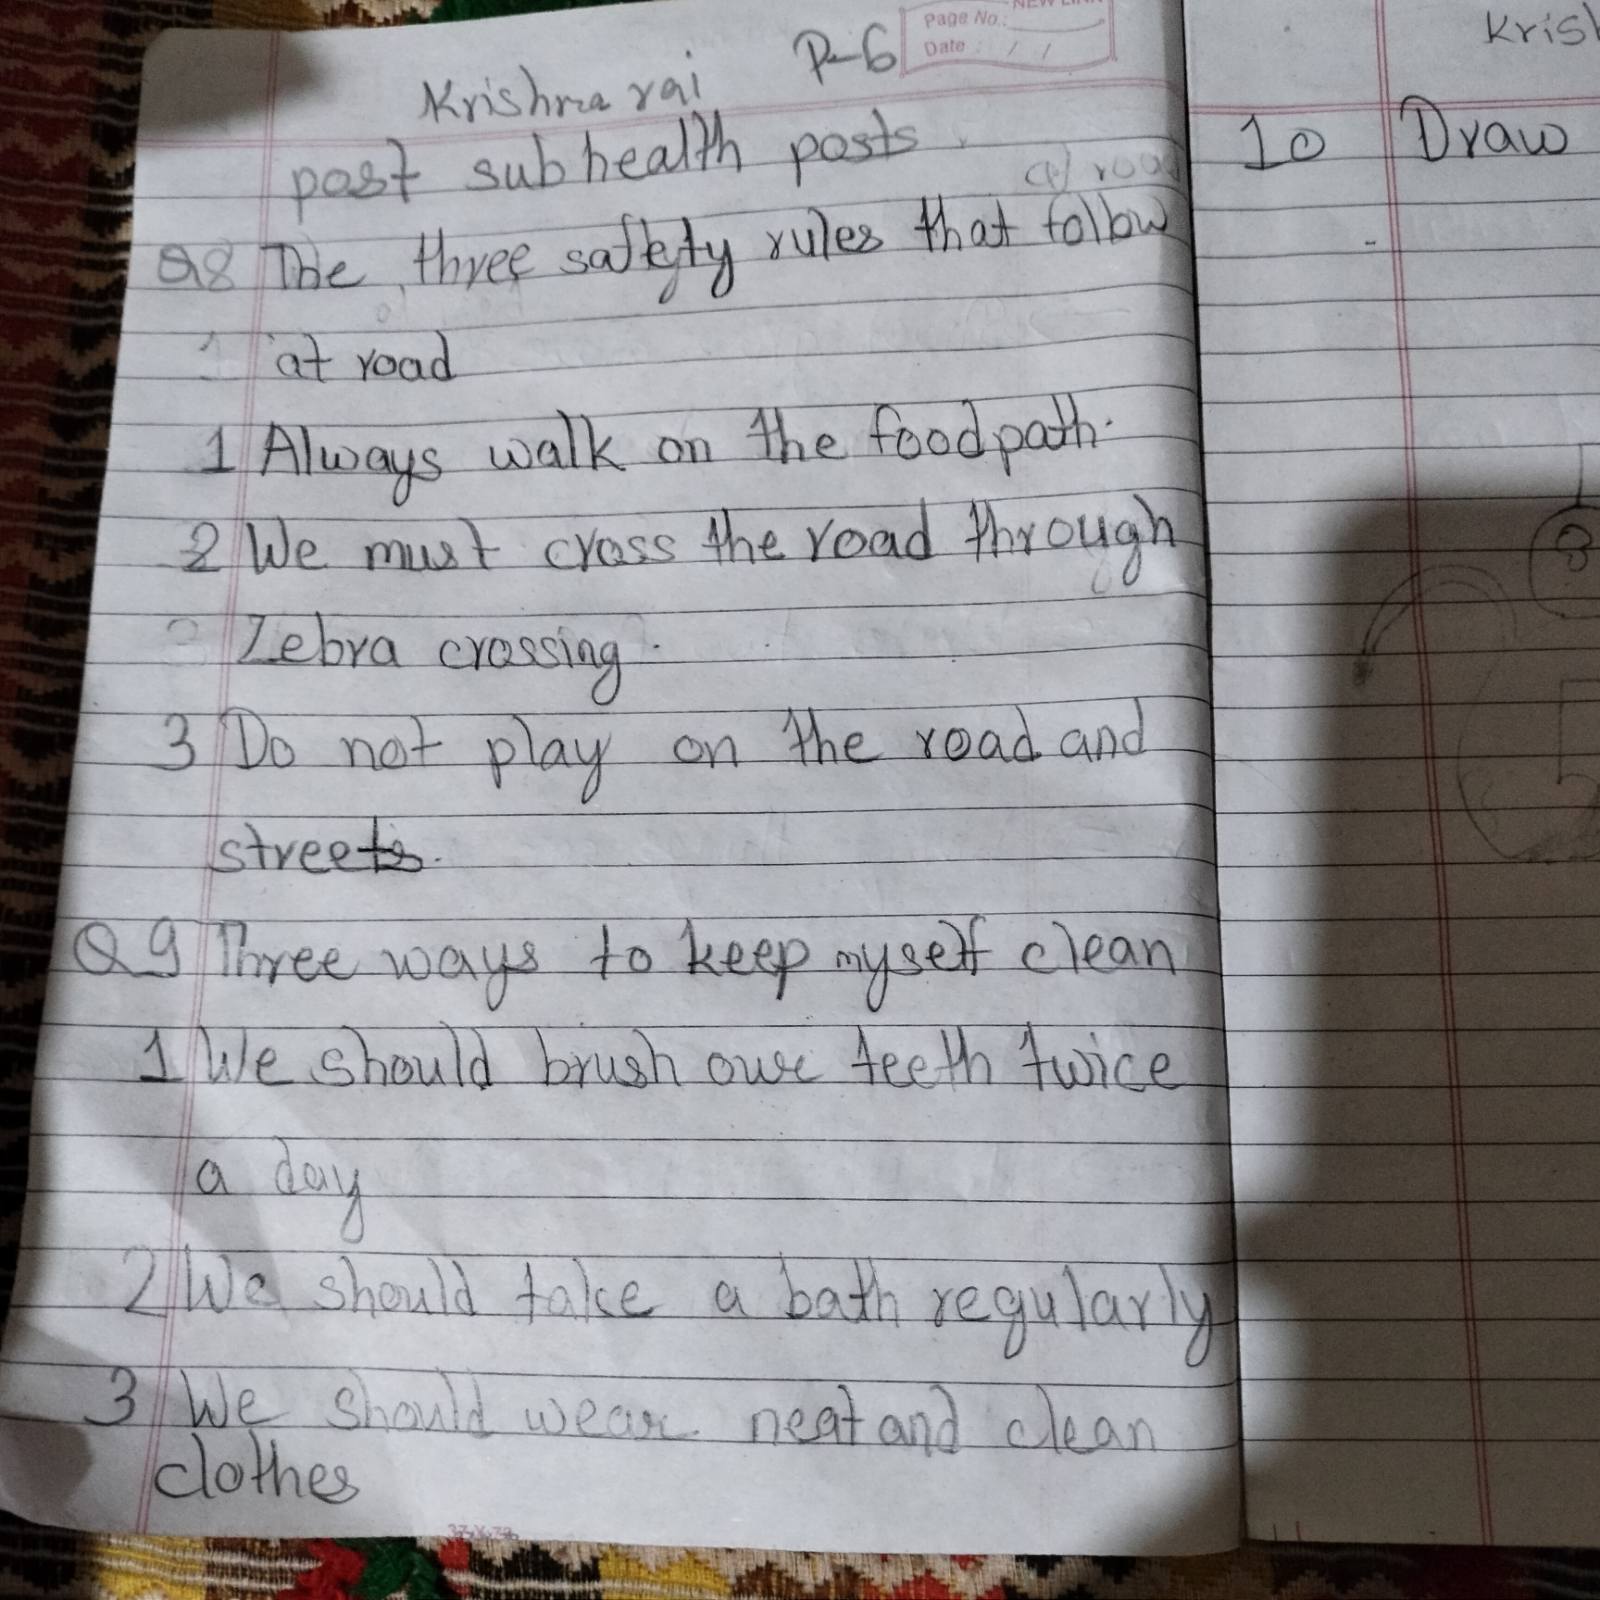 NEW LINK
Page No.:
Date : / /
Krishna rai P-6
post sub health posts
Q8 The three safety rules that follow
at road
1 Always walk on the foodpath.
2 We must cross the road through
Zebra crossing.
3 Do not play on the road and
streets.
Q9 Three ways to keep myself clean
1 We should brush our teeth twice
a day
2 We should take a bath regularly
3 We should wear neat and clean
clothes
Krish
10 Draw
8
5